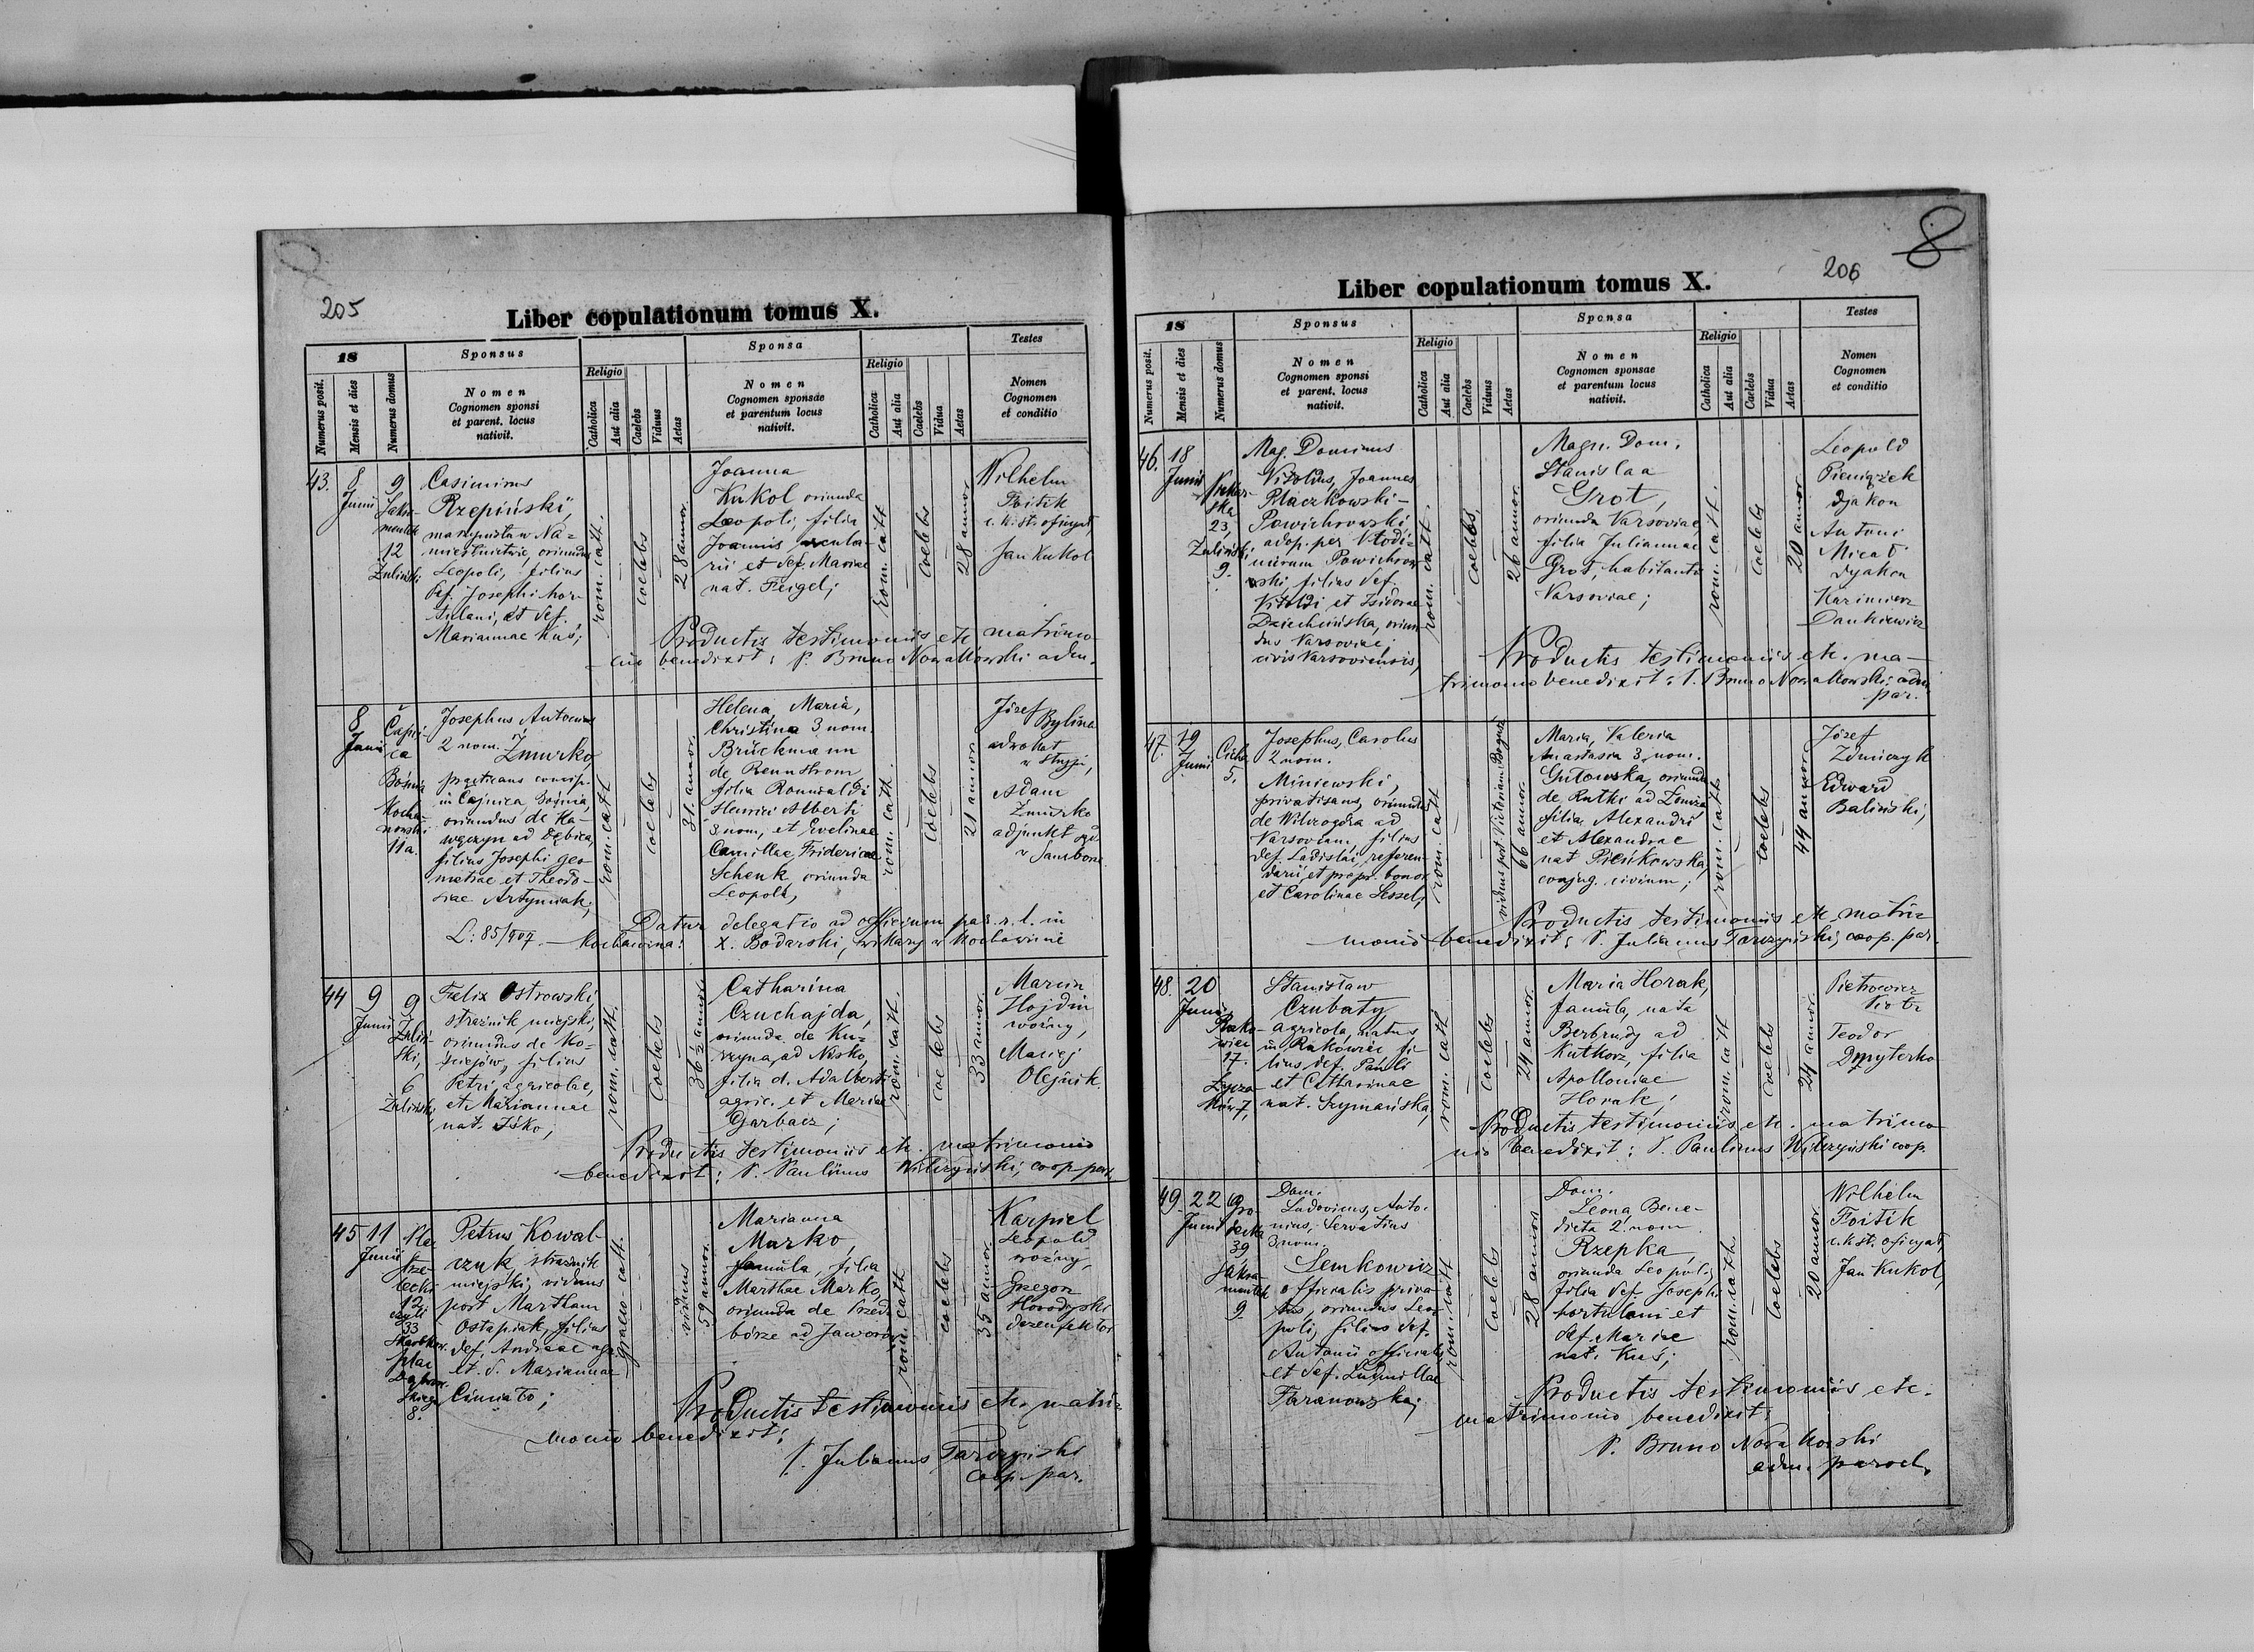 205
Liber copulationum tomus X.
18
Sponsus
Sponsa
Testes
Numerus posit.
Mensis et dies
Numerus domus
Nomen
Cognomen sponsi
et parent. locus
nativit.
Religio
Catholica
Aut alia
Caelebs
Viduus
Aetas
Nomen
Cognomen sponsae
et parentum locus
nativit.
Religio
Catholica
Aut alia
Caelebs
Vidua
Aetas
Nomen
Cognomen
et conditio
43.
8
Junii
9
Sakra-
mentek
12
Zulinski
Casimirus
Rzepiński,
manipulant w Na=
miestnictwie, oriundus
Leopoli, filius
def. Josephi hor-
tulani, et def.
Mariannae Kuś;
rom. cath.
coelebs
28 annor.
Joanna
Kukol oriunda
Leopoli, filia
Joannis
et def. Mariae
nat. Feigel;
rom. cath
coelebs
28 annor.
Wilhelm
Foitik
c. k. st. oficyał,
Jan Kukol
Productis testimoniis etc matrimo-
nio benedixit: P. Bruno Nowakowski adm.
8
Junii
Čajni-
ca
Bośnia
Kocha-
nowski
11a.
Josephus Antonius
2 nom. Żmurko,
practicans concip.
in Čajnica Bośnia,
oriundus de Ka-
węczyn ad Dębica,
filius Josephi geo-
metrae et Theodo-
siae Artymiak;
L: 85/907.
rom. cath
coelebs
31. annor.
Helena, Maria,
Christina 3 nom.
Brückmann
de Rennstrom
filia Romualdi
Henrici Alberti
3 nom, et Evelinae
Camillae Fridericae
Schenk oriunda
Leopoli,
rom. cath.
coelebs
21 annor.
Józef Bylina
adwokat
w Stryju,
Adam
Żmurko
adjunkt sąd.
w Samborze
Datur delegatio ad officium par. r. l. in
Kochawina: X. Bodarski, wikary w Kochawinie
44
9
Junii
9
Zulin-
ski,
6
Zulinski,
Felix Ostrowski,
strażnik miejski,
oriundus de Mo-
ściejów, filius
Petri, agricolae,
et Mariannae
nat. Isko;
rom. cath.
coelebs
36 annor.
Catharina
Czuchajda,
oriunda de Ku=
rzyna, ad Nisko,
filia d. Adalberti
agric. et Mariae
Garbacz;
rom. cath.
coelebs
33 annor.
Marcin
Hojdin
woźny,
Maciej
Olejnik
Productis testimoniis etc. matrimonio
benedixit: P. Paulinus Wilczyński, coop. par.
45
11
Junii
Petrus Kowal-
czuk strażnik
miejski, viduus
post Martham
Ostapiak, filius
def. Andreae agr.
et d. Mariannae
graeco-cath.
viduus
59 annor.
Marianna
Marko,
famula, filia
Marthae Marko,
oriunda de Przed-
borze ad Jaworów
rom. cath
coelebs
35 annor.
Karpiel
Leopold
woźny,
Grzegorz
Horodyski
dezenfektor
Productis testimoniis etc. matri=
monio benedixit:
P. Julianus Tarczyński
coop. par.
8
206
Liber copulationum tomus X.
18
Sponsus
Sponsa
Testes
Numerus posit.
Mensis et dies
Numerus domus
Nomen
Cognomen sponsi
et parent. locus
nativit.
Religio
Catholica
Aut alia
Caelebs
Viduus
Aetas
Nomen
Cognomen sponsae
et parentum locus
nativit.
Religio
Catholica
Aut alia
Caelebs
Vidua
Aetas
Nomen
Cognomen
et conditio
46.
18
Junii
Piekar-
ska
23,
Zulinski
9.
Mag. Dominus
Vitoldus, Joannes
Płaczkowski-
Powichrowski,
adop. per Vlodi-
mirum Powichro-
wski filius def.
Vitoldi et Isidorae
Dziechcińska, oriun-
dus Varsoviae,
civis Varsoviensis,
rom. cath.
coelebs
26 annor.
Magn. Dom.
Stanislaa
Grot,
oriunda Varsoviae,
filia Juliannae
Grot, habitantis
Varsoviae;
rom. cath.
coelebs
20 annor.
Leopold
Pieniążek
dyakon
Antoni
Micał
dyakon
Kazimierz
Dankiewicz
Productis testimoniis etc. ma-
trimonio benedixit: P. Bruno Nowakowski adm.
par.
47.
19
Junii
Cicha
5.
Josephus, Carolus
2 nom.
Miniewski,
privatisans, oriundus
de Wilczogóra ad
Varsoviam, filius
def. Ladislai, referen-
darii et propr. bonor.
et Carolinae Lessel;
rom. cath
viduus post Victoriam Bogusz
66 annor.
Maria, Valeria
Anastasia 3 nom.
Gutowska, oriunda
de Rutki ad Łomża
filia Alexandri
et Alexandrae
nat. Pieńkowska,
conjug. civium;
rom. cath
coelebs
44 annor.
Józef
Zdunczyk
Edward
Baliński,
Productis testimoniis etc. matri=
monio benedixit: P. Julianus Tarczyński, coop. par.
48.
20
Junii
Rako-
wiec
17.
Łycza-
ków 7,
Stanisław
Czubaty,
agricola, natus
in Rakowiec fi-
lius def. Pauli
et Catharinae
nat. Szymańska,
rom. cath
coelebs
24 annor.
Maria Horak,
famula, nata
ad
Kutkorz, filia
Apolloniae
Horak;
rom. cath
coelebs
24 annor.
Pietrowicz
Piotr
Teodor
Dmyterko
Productis testimoniis etc. matrimo-
nio benedixit: P. Paulinus Wilczyński coop.
49.
22
Junii
Gro-
decka
39
Sakra-
mentek
9.
Dom.
Ludovicus, Anto-
nius, Servatius
3 nom.
Semkowicz
officialis priva-
tus, oriundus Leo-
poli, filius def.
Antonii officialis
et def. Ludmillae
Taranowska;
rom. cath
coelebs
28 annor.
Dom.
Leona Bene-
dicta 2 nom.
Rzepka,
oriunda Leopoli,
filia def. Josephi
hortulani et
def. Mariae
nat. Kuś;
rom. cath.
coelebs
20 annor.
Wilhelm
Foitik
c. k. st. oficyał,
Jan Kukol,
Productis testimoniis etc.
matrimonio benedixit:
P. Bruno Nowakowski
adm. paroch.